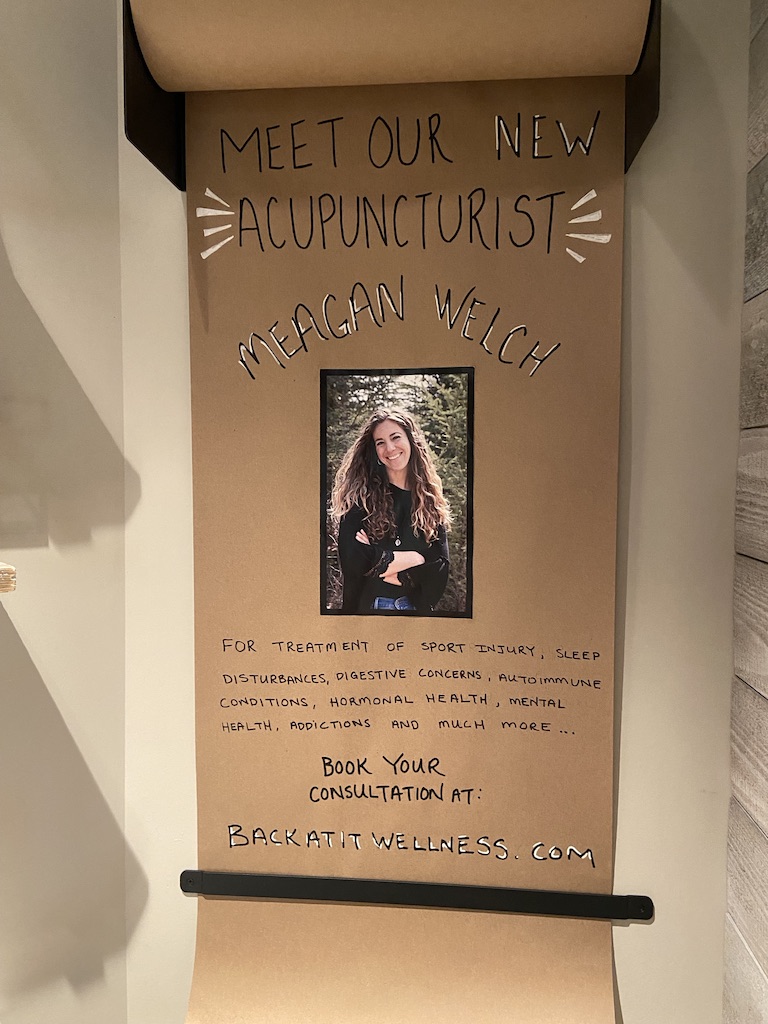 MEET OUR NEW
ACUPUNCTURIST
MEAGAN WELCH
FOR TREATMENT OF SPORT INJURY, SLEEP
DISTURBANCES, DIGESTIVE CONCERNS, AUTOIMMUNE
CONDITIONS, HORMONAL HEALTH, MENTAL
HEALTH, ADDICTIONS AND MUCH MORE...
BOOK YOUR
CONSULTATION AT:
BACKATITWELLNESS.COM